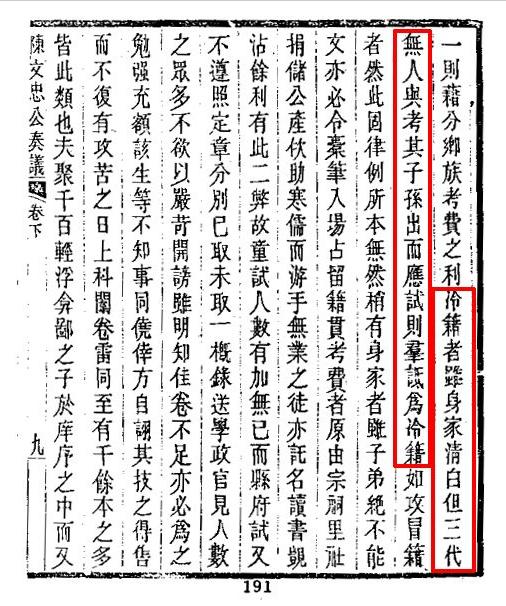 一則藉分鄉族考費之利冷籍者雖身家清白但三代
無人與考其子孫出而應試則羣詆爲冷籍如攻冒籍
者然此固律例所本無然稍有身家者雖子弟絕不能
文亦必令橐筆入場占留籍貫考費者原由宗祠里社
捐儲公產佽助寒儒而游手無業之徒亦託名讀書覬
沾餘利有此二弊故童試人數有加無已而縣府試又
不遵照定章分別已取未取一槪錄送學政官見人數
之眾多不欲以嚴苛開謗雖明知佳卷不足亦必爲之
勉强充額該生等不知事同僥倖方自詡其技之得售
而不復有攻苦之日上科闈卷雷同至有千餘本之多
皆此類也夫聚千百輕浮弇鄙之子於庠序之中而又
陳文忠公奏議 卷下 九
191